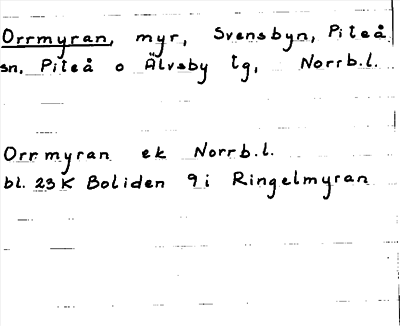 Orrmyran, myr, Svensbyn, Piteå
sn, Piteå o Älvsby tg, Norrb.l.
Orrmyran ek Norrb.l.
bl. 23K Boliden 9i Ringelmyran